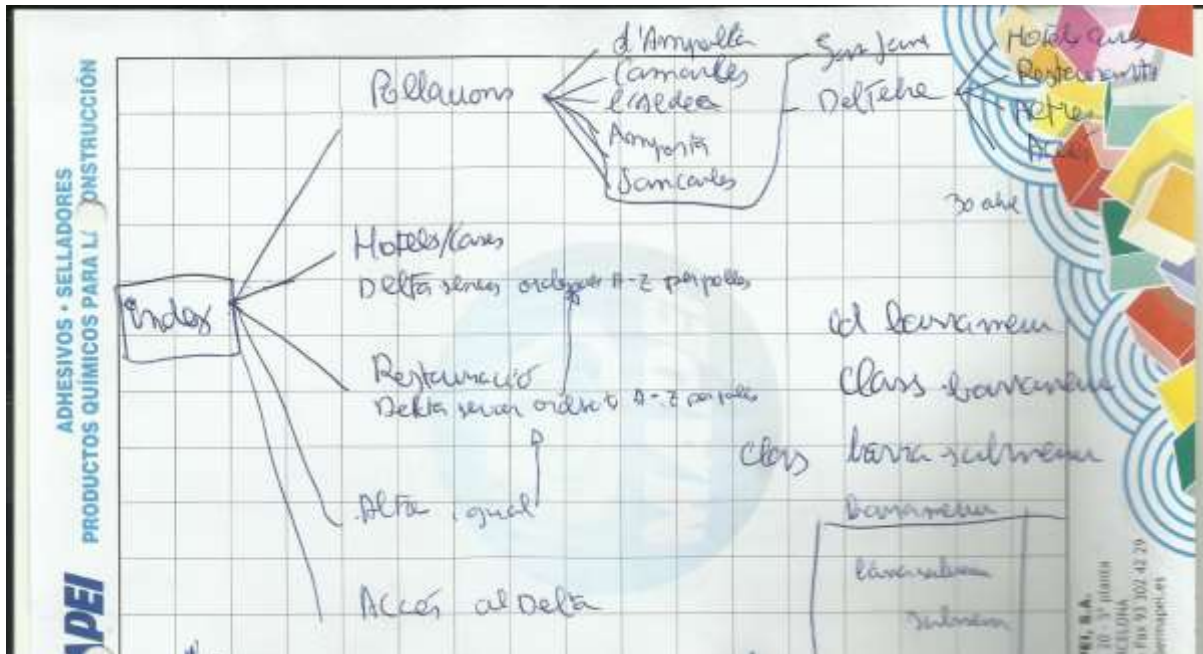 ADHESIVOS • SELLADORES
PRODUCTOS QUÍMICOS PARA LA CONSTRUCCIÓN
APEI
index
Poblacions
d'Ampolla
Camarles
l'Aldea
Amposta
San Carles
San Jaume
Deltebre
Hotels
Restaurants
Altres
Accés
Hotels/Cases
Delta A-Z per pobles
Restauració
Delta A-Z per pobles
Alta igual
Accés al Delta
id barramenu
class barramenu
class barra submenu
barramenu
submenu
PEI, S.A.
5ª planta
Fax 93 302 42 29